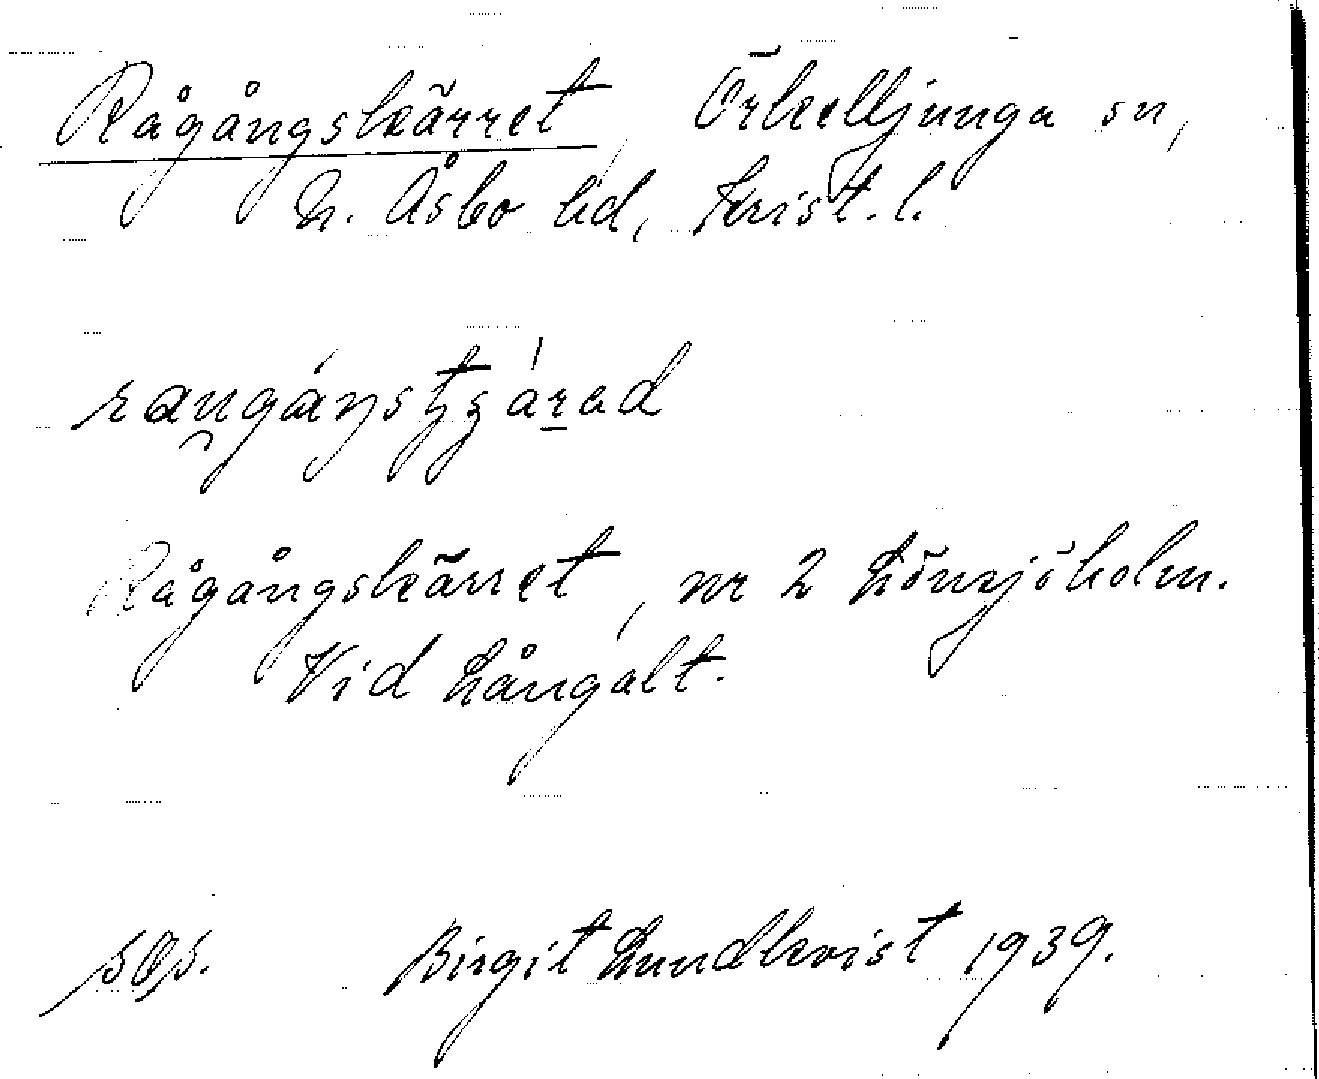 Rågångskärret, Örkelljunga sn,
N. Åsbo hd, Krist. l.
Rågångskärret, nr 2 Lönsjöholm.
Vid Långalt.
Birgit Lundkvist 1939.